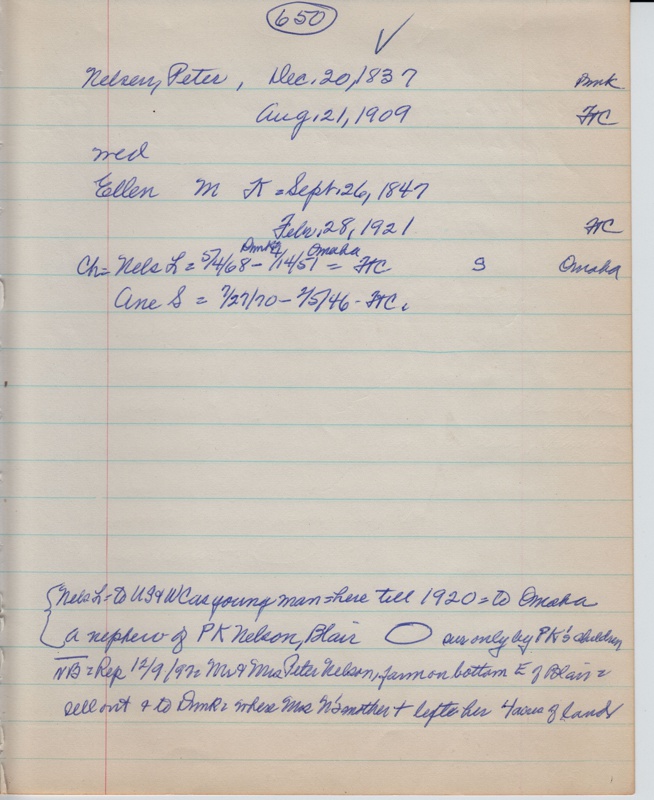 650 ✓
Nelsen, Peter, Dec. 20, 1837 Dmk
Aug. 21, 1909 HC
wed
Ellen M K = Sept. 26, 1847
Feb. 28, 1921 HC
Dmk Omaha
Ch = Nels L = 5/4/68 - /14/51 = HC S Omaha
Ane S = 7/27/70 - 2/5/46 - HC.
Nels L = to US & WC as young man = here till 1920 = to Omaha
a nephew of PK Nelson, Blair only by PK's children
NB = Rep 12/9/92 = Mr & Mrs Peter Nelson, farm on bottom E of Blair =
sell out & to Dmk = where Mrs N's mother + left her 4 acres of land